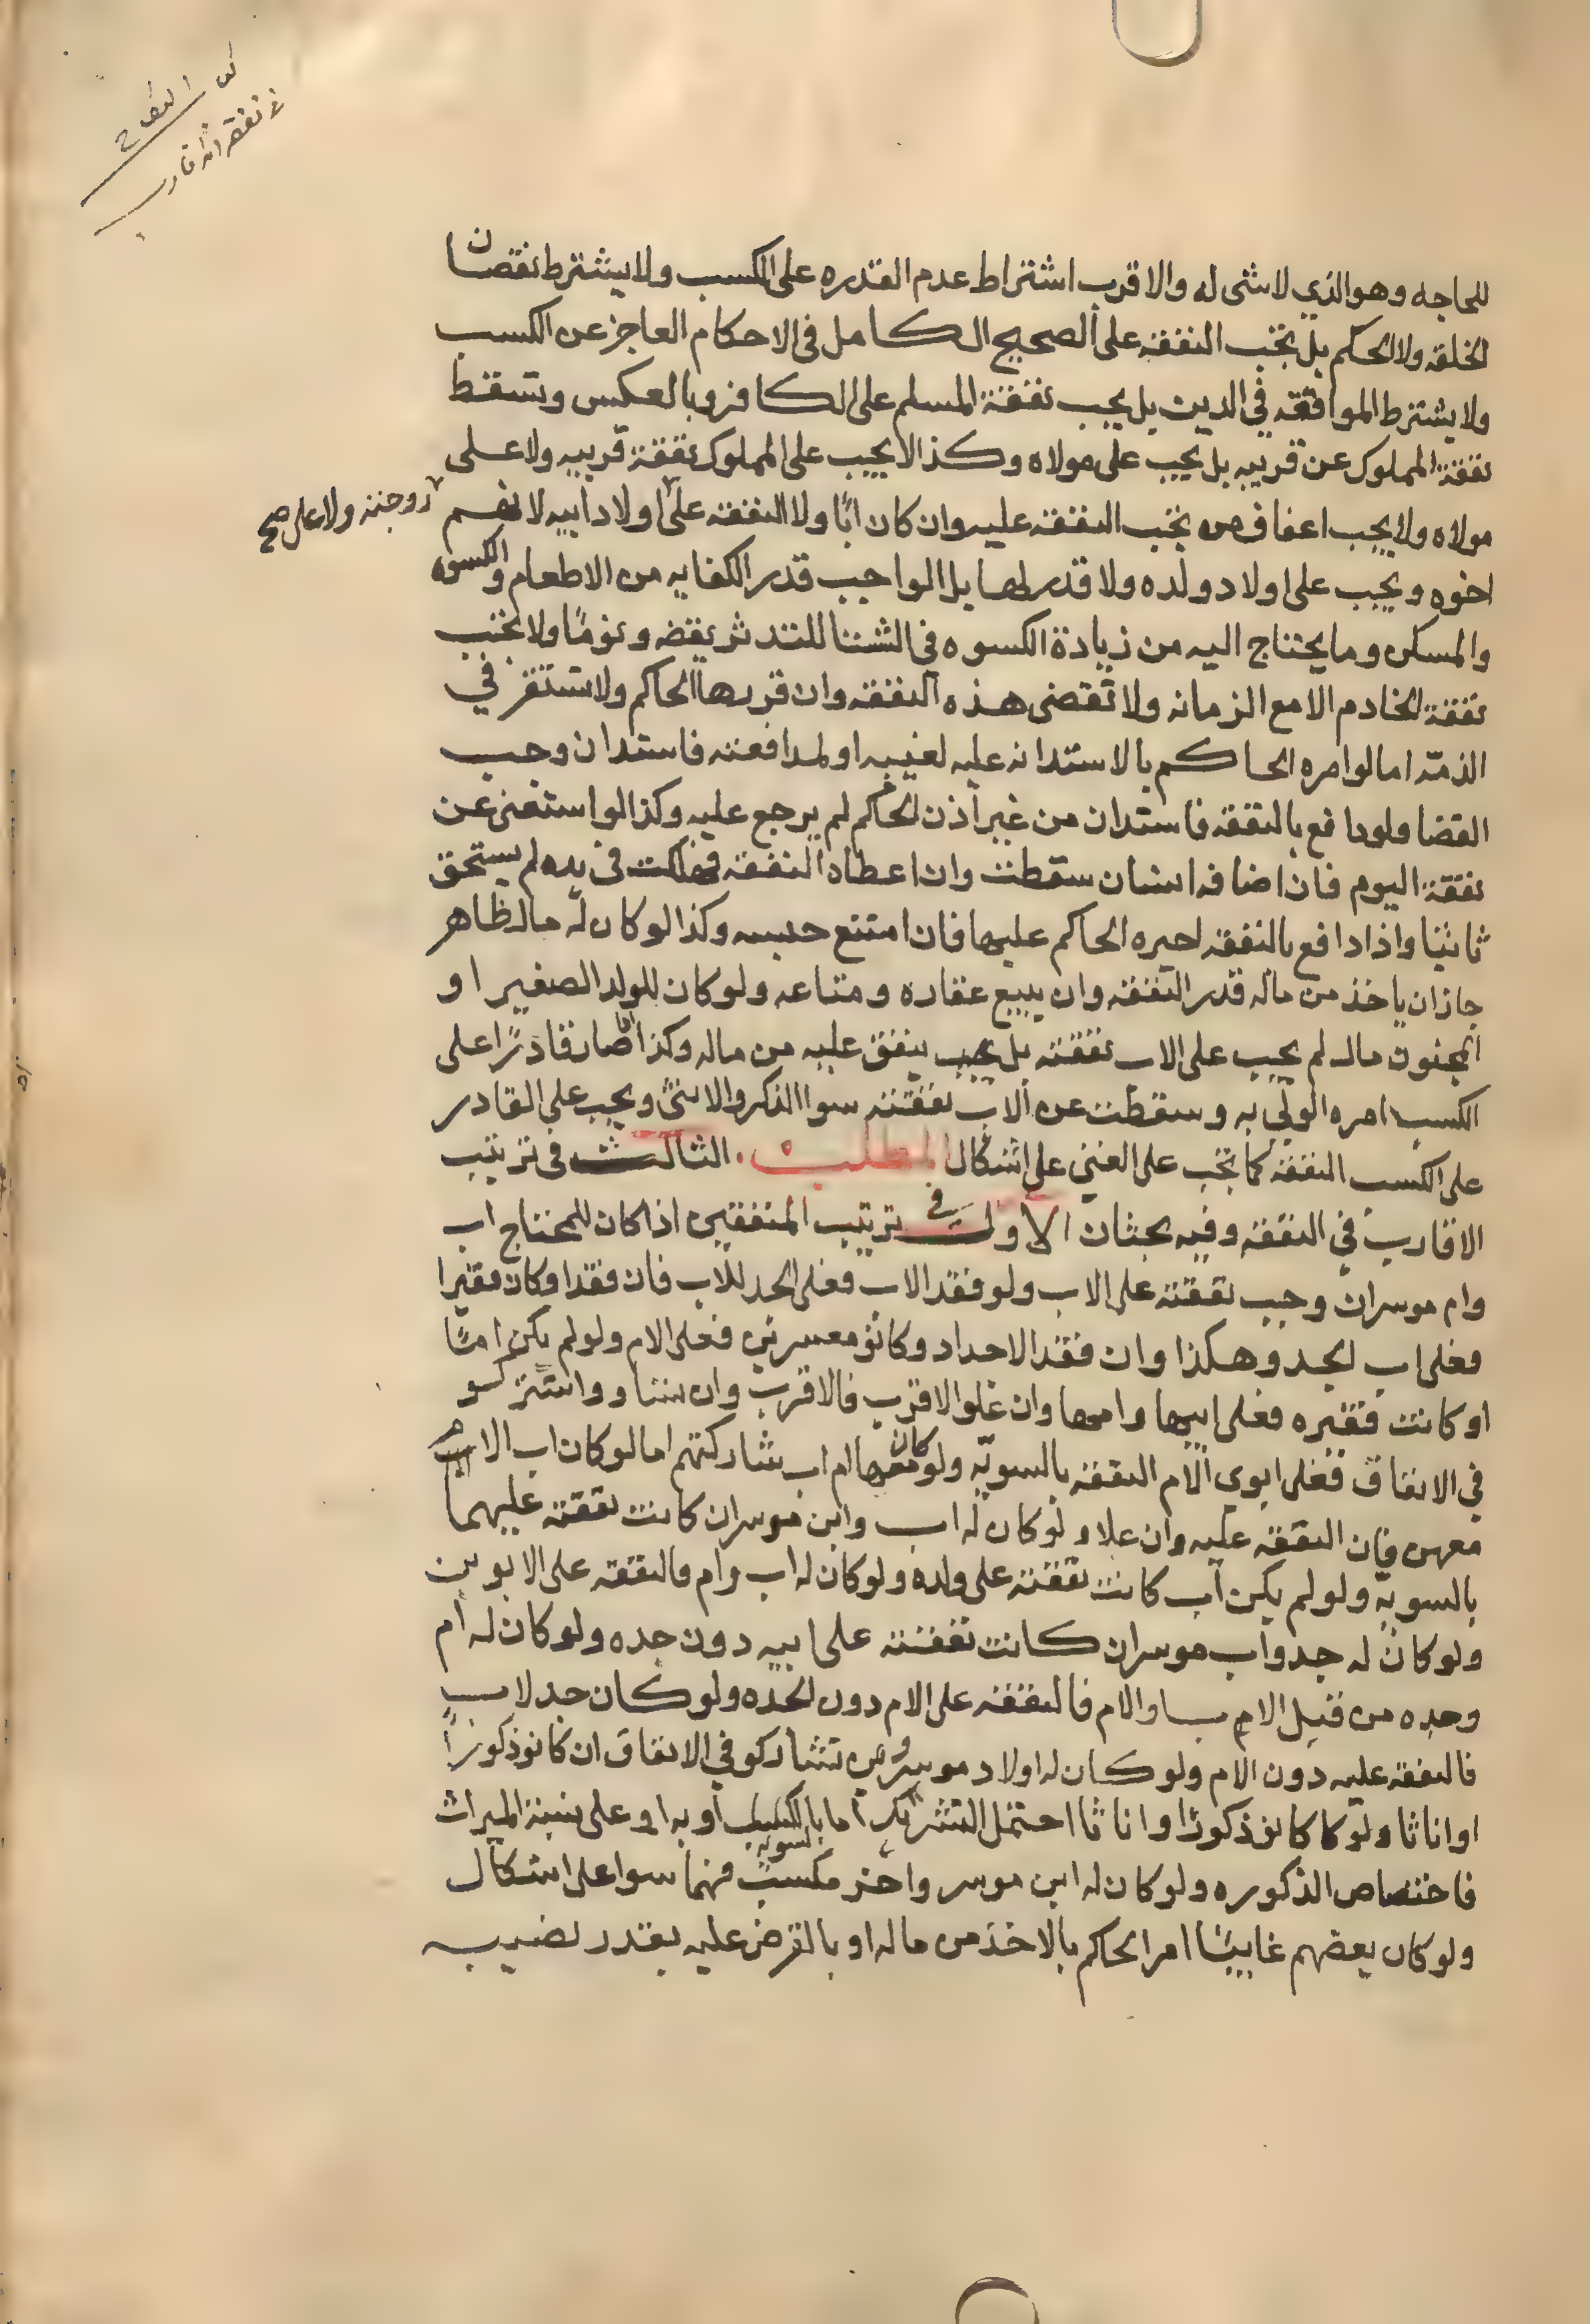 كتاب النكاح
في نفقة الاقارب
للحاجه وهو الذي لا شى له والاقرب اشتراط عدم القدره على الكسب ولا يشترط نقصان
الخلقه ولا الحكم بل تجب النفقه على الصحيح الكامل فى الاحكام العاجز عن الكسب
ولا يشترط الموافقه في الدين بل يجب نفقة المسلم على الكافر وبالعكس وتسقط
نفقة المملوك عن قريبه بل يجب على مولاه وكذا لا يجب على المملوك نفقة قريبه ولا على
مولاه ولا يجب اعفاف من تجب النفقه عليه وان كان ابًا ولا النفقه على اولاد ابيه لانهم
زوجته ولا على صح
اخوه ويجب على اولاد ولده ولا قدر لها بل الواجب قدر الكفايه من الاطعام والكسوه
والمسكن وما يحتاج اليه من زيادة الكسوه في الشتا للتدثر يقضه ونومًا ولا تجب
نفقة الخادم الا مع الزمانه ولا تقضى هذه النفقه وان قررها الحاكم ولا تستقر في
الذمّه اما لو امره الحاكم بالاستدانه عليه لغيبه او لمدافعته فاستدان وجب
القضا ولو دافع بالنفقه فاستدان من غير اذن الحاكم لم يرجع عليه وكذا لو استغنى عن
نفقة اليوم فان اضافه انسان سقطت وان اعطاه النفقه فهلكت فى يده لم يستحق
ثانيًا واذا دافع بالنفقه اجبره الحاكم عليها فان امتنع حبسه وكذا لو كان له مال ظاهر
جاز ان ياخذ من ماله قدر النفقه وان يبيع عقاره ومتاعه ولو كان للولد الصغير او
المجنون مال لم يجب على الاب نفقته بل يجب ينفق عليه من ماله وكذا صار قادرًا على
الكسب امره الولي به وسقطت عن الاب نفقته سوا الذكر والانثى ويجب على القادر
على الكسب النفقه كما تجب على الغني على اشكال المطلب الثالث فى ترتيب
الاقارب في النفقه وفيه بحثان الاول في ترتيب المنفقين اذا كان للمحتاج اب
وام موسران وجب نفقته على الاب ولو فقد الاب فعلى الجد للاب فان فقد او كان فقيرا
فعلى اب الجد وهكذا وان فقد الاجداد وكانو معسرين فعلى الام ولو لم يكن امًا
او كانت فقيره فعلى ابيها وامها وان علو الاقرب فالاقرب وان تساوو اشتركو
في الانفاق فعلى ابوى الام النفقه بالسويّه ولو كان معها ام اب شاركتهم اما لو كان اب الاب
معهم فان النفقه عليه وان علا ولو كان له اب وابن موسران كانت نفقته عليهما
بالسويّه ولو لم يكن اب كانت نفقته على ولده ولو كان له اب وام فالنفقه على الابوين
ولو كان له جد واب موسران كانت نفقته على ابيه دون جده ولو كان له ام
وجده من قبل الام والام فالنفقه على الام دون الجده ولو كان جد لاب
فالنفقه عليه دون الام ولو كان له اولاد موسرون تشاركو في الانفاق ان كانو ذكورًا
او اناثا ولو كانو ذكورًا واناثا احتمل التشريك اما بالسويه او به او على نسبة الميراث
فاختصاص الذكوره ولو كان له ابن موسر واخر مكسب فهما سوا على اشكال
ولو كان بعضهم غايبًا امر الحاكم بالاخذ من ماله او بالقرض عليه بقدر نصيبه